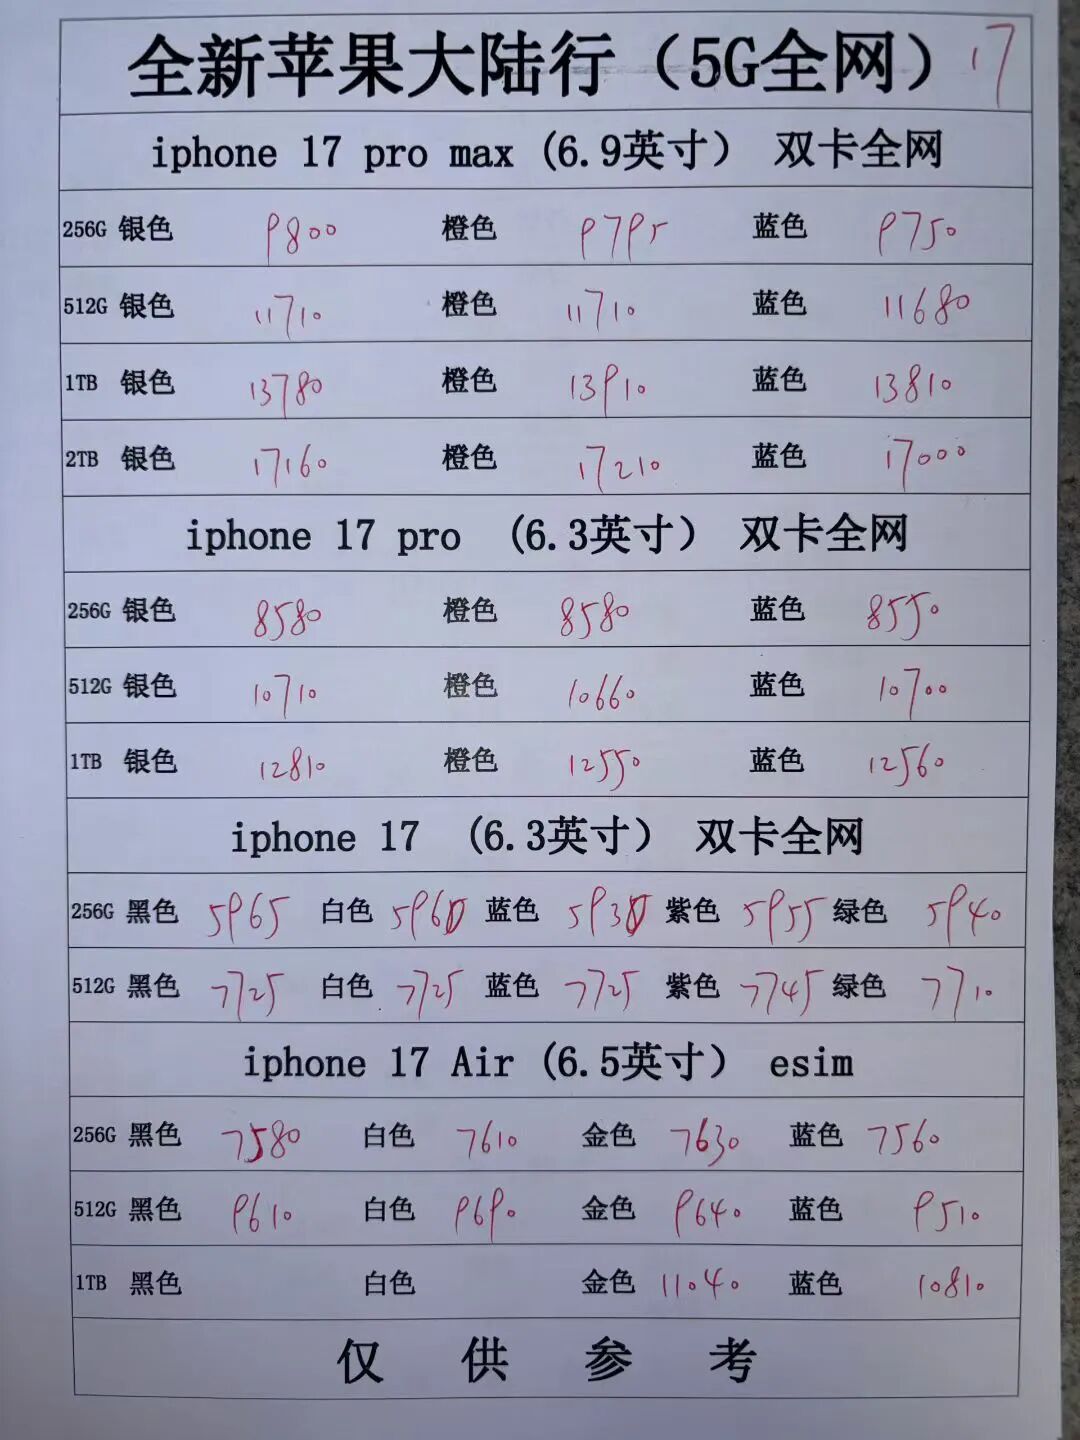 全新苹果大陆行（5G全网） 17
iphone 17 pro max (6.9英寸） 双卡全网
256G 银色 9800 橙色 9795 蓝色 9750
512G 银色 11710 橙色 11710 蓝色 11680
1TB 银色 13780 橙色 13910 蓝色 13810
2TB 银色 17160 橙色 17210 蓝色 17000
iphone 17 pro (6.3英寸） 双卡全网
256G 银色 8580 橙色 8580 蓝色 8550
512G 银色 10710 橙色 10660 蓝色 10700
1TB 银色 12810 橙色 12550 蓝色 12560
iphone 17 (6.3英寸） 双卡全网
256G 黑色 5965 白色 5960 蓝色 5930 紫色 5955 绿色 5940
512G 黑色 7725 白色 7725 蓝色 7725 紫色 7745 绿色 7710
iphone 17 Air (6.5英寸） esim
256G 黑色 7580 白色 7610 金色 7630 蓝色 7560
512G 黑色 9610 白色 9690 金色 9640 蓝色 9510
1TB 黑色 白色 金色 11040 蓝色 10810
仅供参考